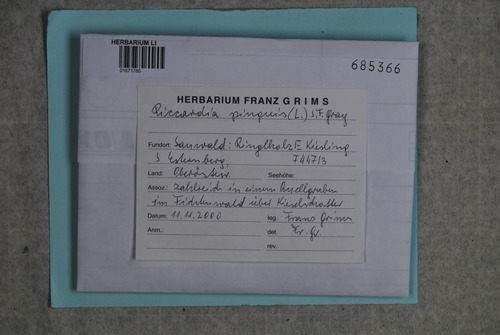 HERBARIUM LI
01671780
685366
HERBARIUM FRANZ GRIMS
Riccardia pinguis (L.) S.F. Gray
Fundort: Sauwald: Ringlholz E Kiesling
S Esternberg, 7447/3
Land: Oberösterr. Seehöhe:
Assoz.: zahlreich in einem Quellgraben
im Fichtenwald über Kieslschotter
Datum: 11.11.2000 leg. Franz Grims
Anm.: det. Fr. Gr.
rev.